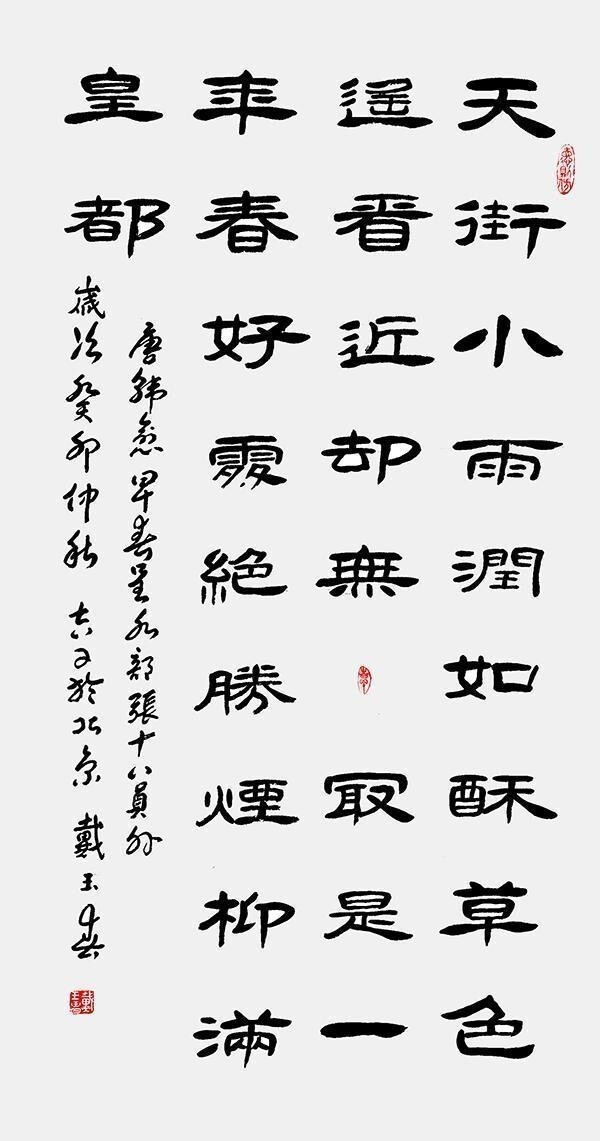 天街小雨潤如酥草色
遙看近却無最是一
年春好處絕勝煙柳滿
皇都
唐韓愈早春呈水部張十八員外
歲次癸卯仲秋 吉日於北京 戴玉春